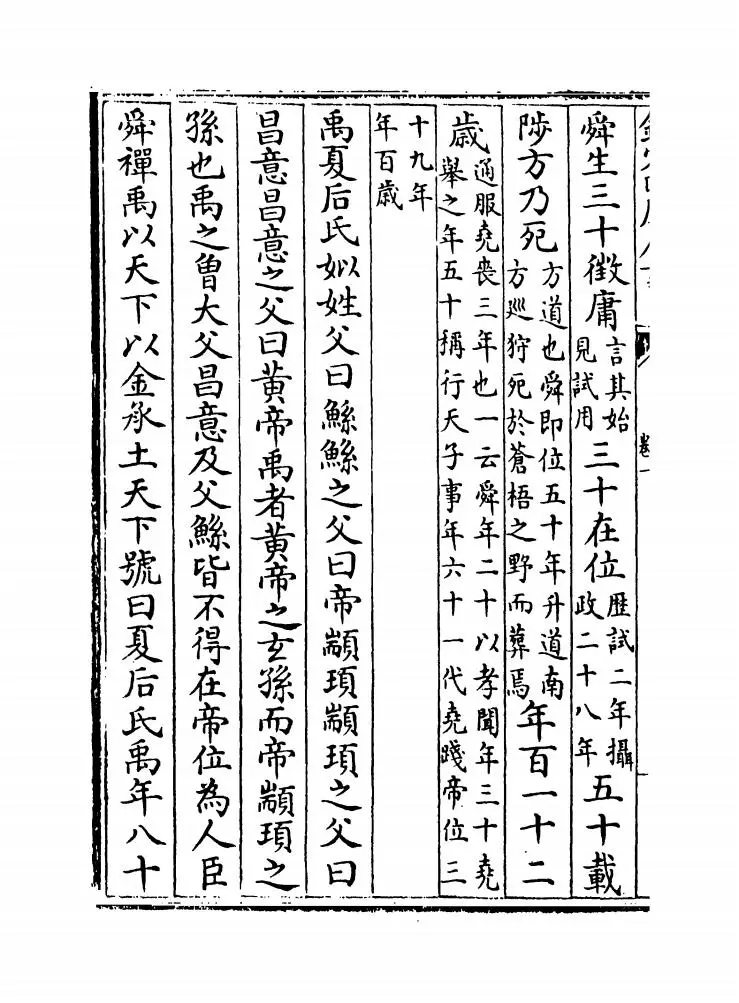 舜生三十徵庸言其始見試用三十在位歴試二年攝政二十八年五十載
陟方乃死方道也舜即位五十年升道南方巡狩死於蒼梧之野而葬焉年百一十二
歲通服堯喪三年也一云舜年二十以孝聞年三十堯舉之年五十稱行天子事年六十一代堯踐帝位三
十九年年百歲
禹夏后氏姒姓父曰鯀鯀之父曰帝顓頊顓頊之父曰
昌意昌意之父曰黃帝禹者黃帝之玄孫而帝顓頊之
孫也禹之曾大父昌意及父鯀皆不得在帝位為人臣
舜禪禹以天下以金承土天下號曰夏后氏禹年八十